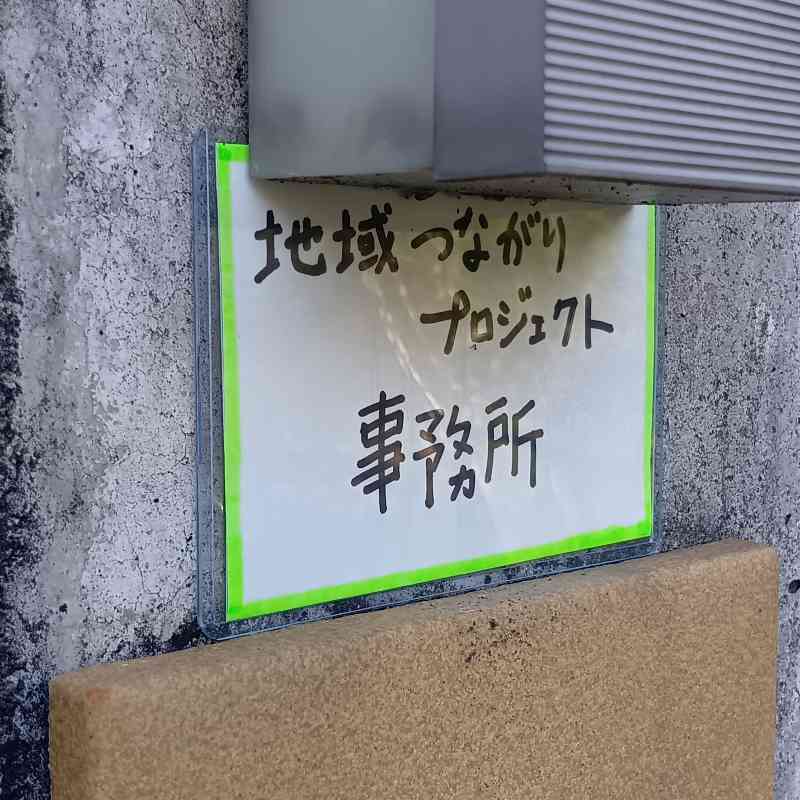 地域つながり
プロジェクト
事務所